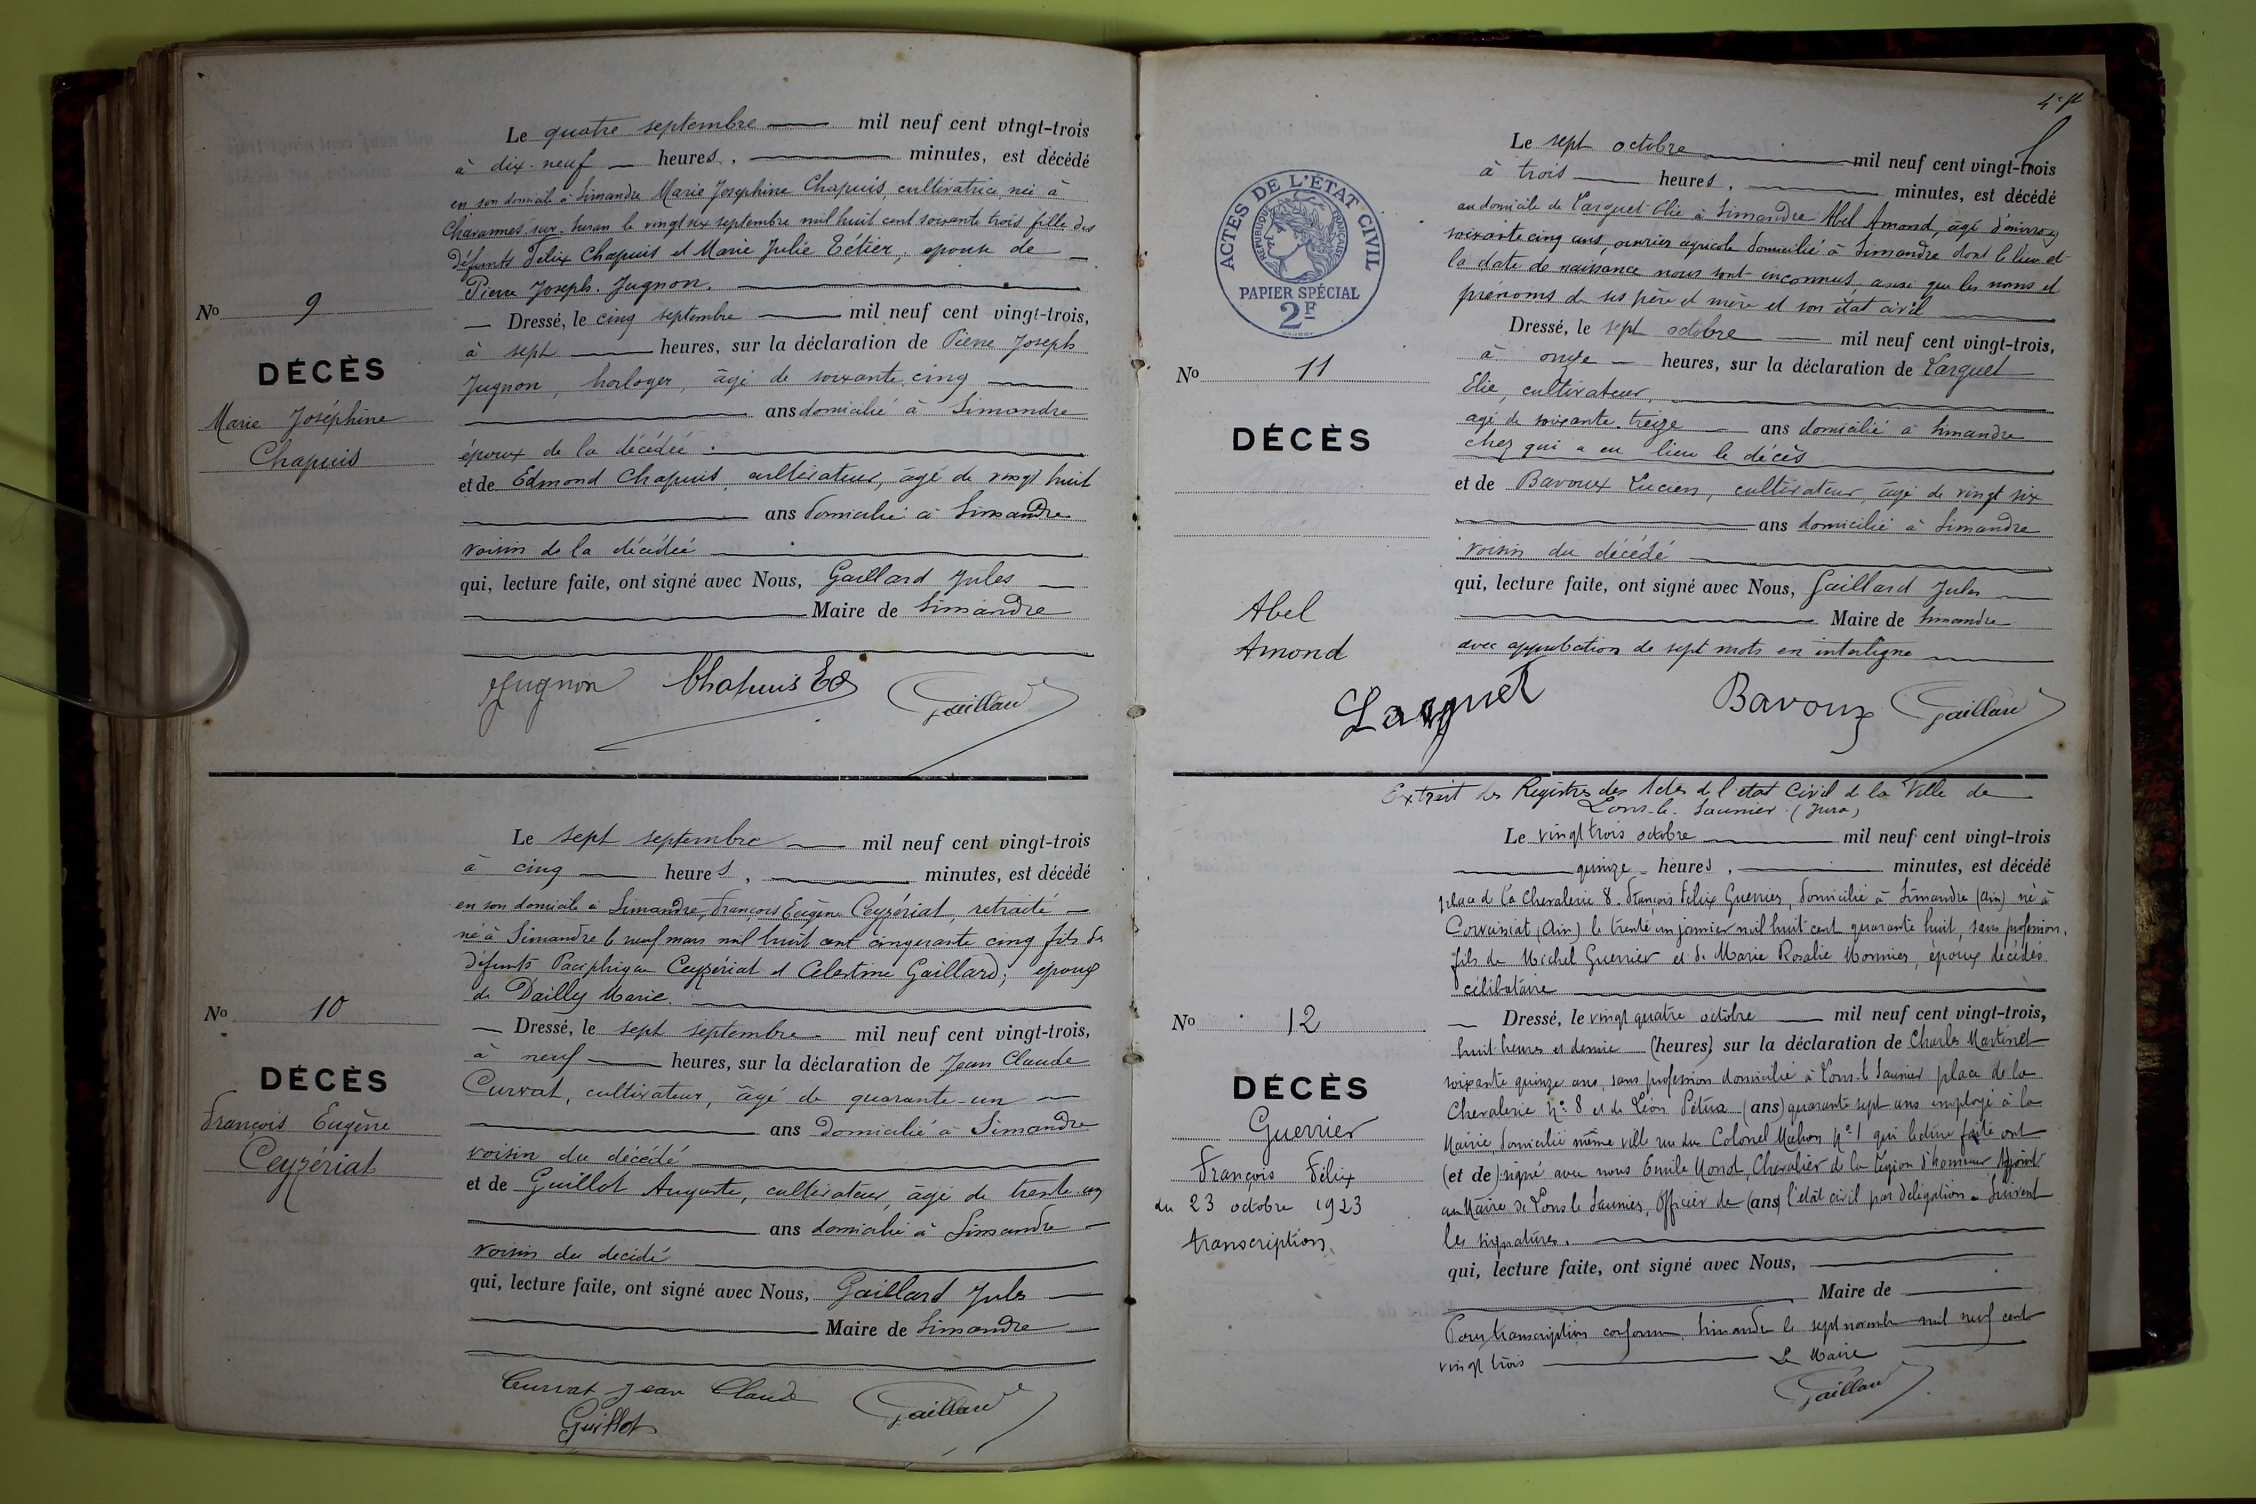 Le quatre septembre mil neuf cent vingt-trois
à dix-neuf heures, minutes, est décédé
en son domicile à Simandre Marie Joséphine Chapuis, cultivatrice, née à
Chavannes-sur-Suran le vingt six septembre mil huit cent soixante trois fille des
défunts Félix Chapuis et Marie Julie Tétier, épouse de
Pierre Joseph Jugnon.
No 9
Dressé, le cinq septembre mil neuf cent vingt-trois,
à sept heures, sur la déclaration de Pierre Joseph
DÉCÈS
Jugnon, horloger, âgé de soixante cinq
Marie Joséphine
Chapuis
ans domicilié à Simandre
époux de la décédée.
et de Edmond Chapuis, cultivateur, âgé de vingt huit
ans domicilié à Simandre
voisin de la décédée
qui, lecture faite, ont signé avec Nous, Gaillard Jules
Maire de Simandre
Jugnon Chapuis Ed Gaillard
Le sept septembre mil neuf cent vingt-trois
à cinq heures, minutes, est décédé
en son domicile à Simandre, François Eugène Ceyzériat, retraité
né à Simandre le neuf mars mil huit cent cinquante cinq fils de
défunts Ceyzériat et Célestine Gaillard; époux
de Dailly Marie.
No 10
Dressé, le sept septembre mil neuf cent vingt-trois,
à neuf heures, sur la déclaration de Jean Claude
DÉCÈS
Curvat, cultivateur, âgé de quarante-un
François Eugène
Ceyzériat
ans domicilié à Simandre
voisin du décédé
et de Guillot Auguste, cultivateur, âgé de trente un
ans domicilié à Simandre
voisin du décédé
qui, lecture faite, ont signé avec Nous, Gaillard Jules
Maire de Simandre
Curvat Jean Claude Gaillard
Guillot
ACTES DE L'ÉTAT CIVIL
RÉPUBLIQUE FRANÇAISE
PAPIER SPÉCIAL
2F
Le sept octobre mil neuf cent vingt-trois
à trois heures, minutes, est décédé
au domicile de Larguet Elie à Simandre Abel Amond, âgé d'environ
soixante cinq ans, ouvrier agricole domicilié à Simandre dont le lieu et
la date de naissance nous sont inconnus, ainsi que les noms et
prénoms de ses père et mère et son état civil
Dressé, le sept octobre mil neuf cent vingt-trois,
No 11
à onze heures, sur la déclaration de Larguet
Elie, cultivateur,
DÉCÈS
âgé de soixante-treize ans domicilié à Simandre
chez qui a eu lieu le décès
et de Bavoux Lucien, cultivateur, âgé de vingt six
ans domicilié à Simandre
voisin du décédé
qui, lecture faite, ont signé avec Nous, Gaillard Jules
Abel
Amond
Maire de Simandre
avec approbation de sept mots en interligne
Larguet Bavoux Gaillard
Extrait des Registres des Actes de l'état Civil de la Ville de
Lons-le-Saunier (Jura)
Le vingt trois octobre mil neuf cent vingt-trois
quinze heures, minutes, est décédé
place de la Chevalerie 8. François Félix Guerrier, domicilié à Simandre (Ain) né à
Corveissiat (Ain) le trente un janvier mil huit cent quarante huit, sans profession,
fils de Michel Guerrier et de Marie Rosalie Monnier, époux décédés
célibataire
No 12
Dressé, le vingt quatre octobre mil neuf cent vingt-trois,
huit heures et demie (heures) sur la déclaration de Charles Martinet
soixante quinze ans, sans profession domicilié à Lons-le-Saunier place de la
DÉCÈS
Chevalerie No 8 et de Léon (ans) quarante sept ans employé à la
Guerrier
François Félix
du 23 octobre 1923
transcription
Mairie, domicilié même ville rue du Colonel Mahon No 1 qui lecture faite ont
(et de) signé avec nous Emile Monot, Chevalier de la légion d'honneur Adjoint
au Maire de Lons le Saunier, Officier de (ans) l'état civil par délégation. Suivent
les signatures.
qui, lecture faite, ont signé avec Nous,
Maire de
Pour transcription conforme, Simandre le sept novembre mil neuf cent
vingt trois Le Maire
Gaillard